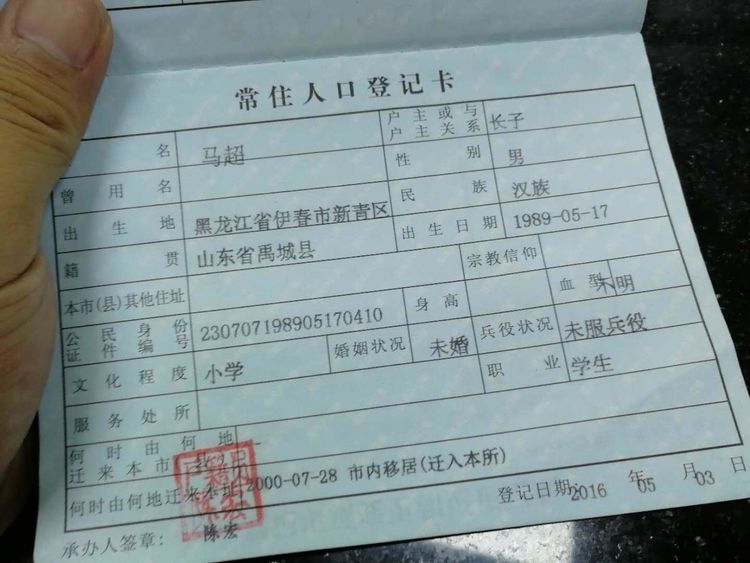 常住人口登记卡
名 马超 户主或与户主关系 长子
曾用名 性别 男
出生地 黑龙江省伊春市新青区 民族 汉族
籍贯 山东省禹城县 出生日期 1989-05-17
本市(县)其他住址 宗教信仰
公民身份证件编号 230707198905170410 身高 血型 不明
文化程度 小学 婚姻状况 未婚 兵役状况 未服兵役
服务处所 职业 学生
何时由何地迁来本市
何时由何地迁来本址 2000-07-28 市内移居(迁入本所)
承办人签章： 陈宏 登记日期： 2016 年 05 月 03 日